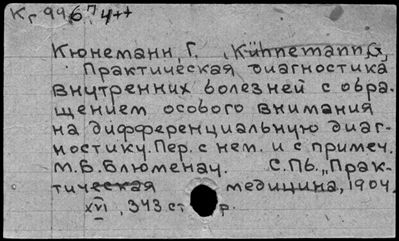 Кг 9967 4++
Кюнеманн, Г. (Kühnemann, G.)
Практическая диагностика
внутренних болезней с обра-
щением особого внимания
на дифференциальную диаг-
ностику. Пер. с нем. и с примеч.
М.Б. Блюменау. С.Пб., "Прак-
тическая медицина, 1904.
XVI, 343 стр.